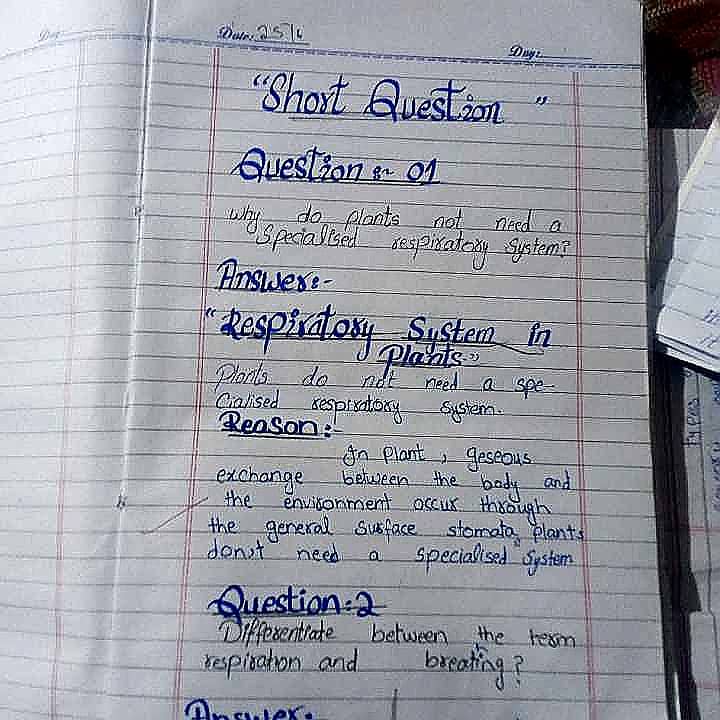 Date: 25/6
Day:
"Short Question"
Question :- 01
Why do plants not need a
Specialised respiratory System?
Answer:-
"Respiratory System in
Plants."
Plants do not need a spe-
cialised respiratory system.
Reason:-
In plant, geseous
exchange between the body and
the environment occur through
the general surface stomata, plants
don't need a specialised system
Question:2
Differentiate between the term
respiration and breating?
Answer: